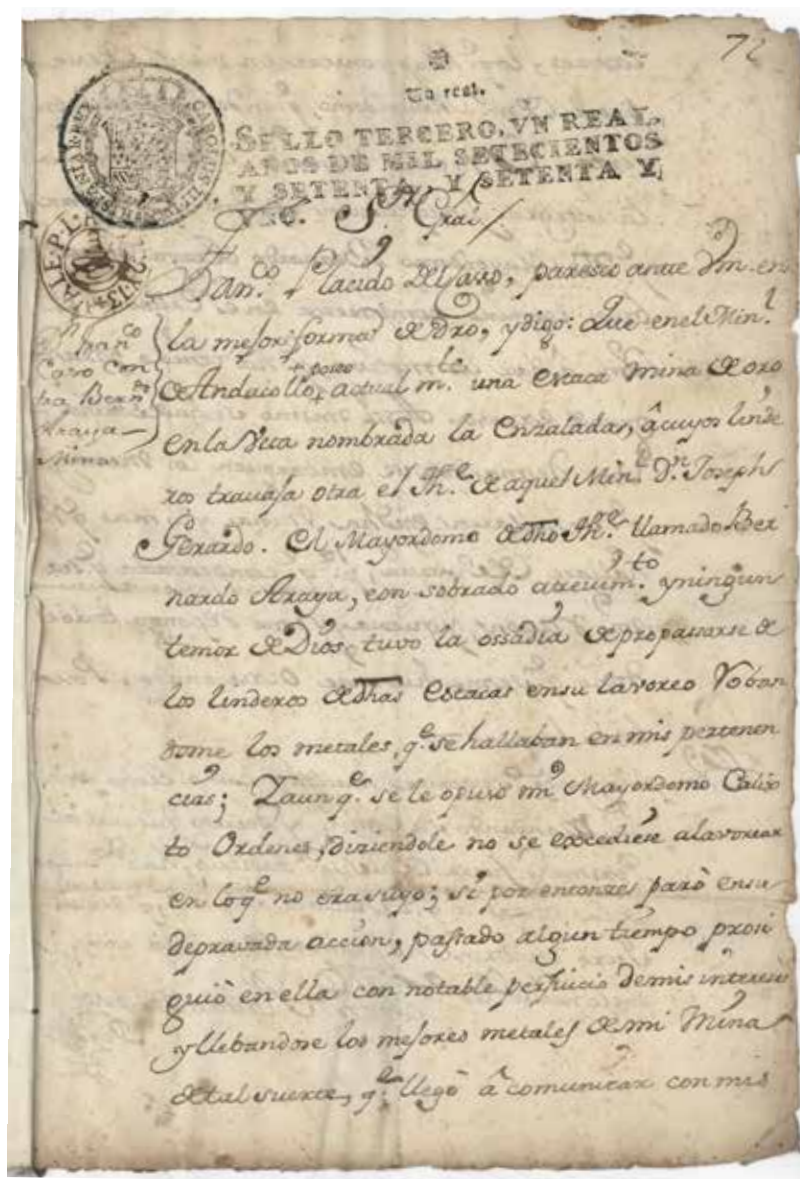 72
Un real.
SELLO TERCERO, VN REAL,
AÑOS DE MIL SETECIENTOS
Y SETENTA, Y SETENTA Y
VNO.
S.r Gral
Fran.co Placido Del Caro, paresco ante Vm. en
la mejor forma de dro, y digo: Que en el Min.l
de Andacollo, poseo actual m.te una estaca mina de oro
en la Veta nombrada la Enzaladas, â cuyos linde
ros travaja otra el Th.e de aquel Min.l D.n Joseph
Gerardo. El Mayordomo de dho Th.e llamado Ber
nardo Araya, con sobrado atrevim.to y ningun
temor de Dios, tuvo la ossadia de propassarse de
los linderos de dhas estacas en su lavoreo Roban
dome los metales, q.e se hallaban en mis pertenen
cias; Y aun q.e se le opuso mi Mayordomo Calix
to Ordenes, diziendole no se excediese a lavorear
en lo q.e no era suyo; si por entonzes parò en su
depravada acción, passado algun tiempo prosi
guiò en ella con notable perjuicio de mis intereses
y llebandose los mejores metales de mi Mina
de tal suerte, q.e llegò â comunicar con mis
Fran.co
Caro Con
tra Bern.do
Araya
Minas